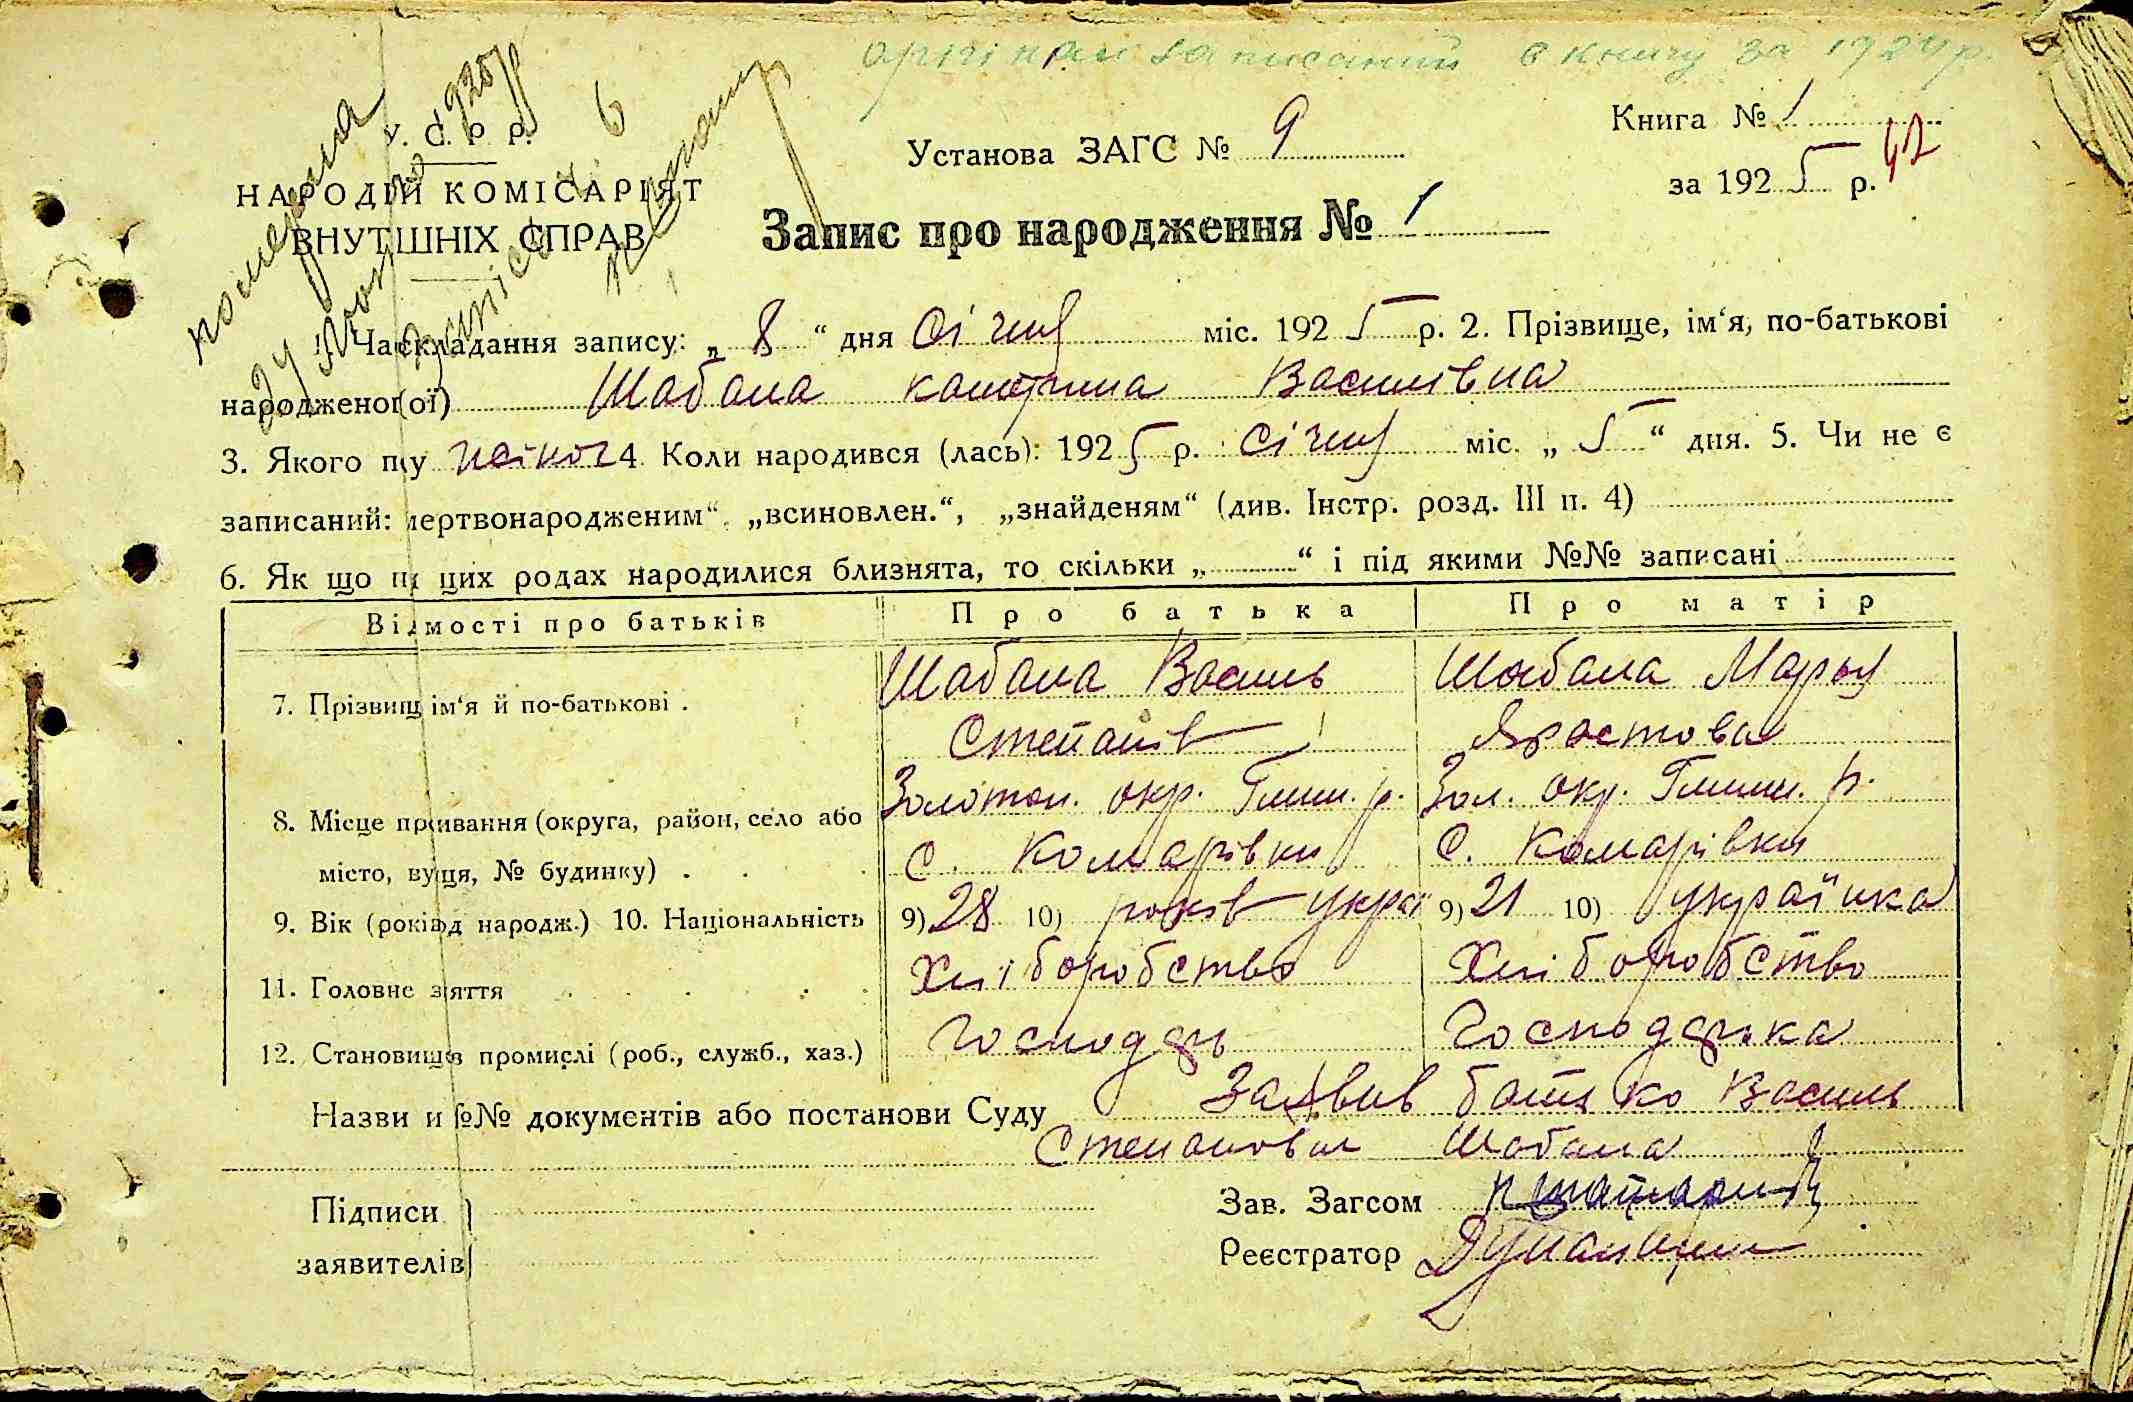 оригінал записаний в книгу за 1924 р.
У. С. Р. Р.
НАРОДНІЙ КОМІСАРІЯТ
ВНУТІШНІХ СПРАВ
Установа ЗАГС № 9
Книга № 1
за 1925 р. 42
Запис про народження № 1
померла
1925 р
запис ч. 6
1. Час складання запису: „ 8 “ дня Січня міс. 1925 р. 2. Прізвище, ім‘я, по-батькові
народженог(ої) Шабала катерина Василівна
3. Якого п у жіноч 4. Коли народився (лась): 1925 р. Січня міс. „ 5 “ дня. 5. Чи не є
записаний: мертвонародженим“, „всиновлен.“, „знайденям“ (див. Інстр. розд. III п. 4)
6. Як що п ц цих родах народилися близнята, то скільки „ “ і під якими №№ записані
Відмості про батьків Про батька Про матір
7. Прізвищ ім‘я й по-батькові . Шабала Василь Шабала Марья
Степанів
8. Місце пр ивання (округа, район, село або Золотон. окр. Гельм. р. Зол. окр. Гельм. р.
місто, ву ця, № будинку) . С. Комарівки С. Комарівка
9. Вік (років д народж.) 10. Національність 9) 28 10) років украї 9) 21 10) українка
11. Головне з яття Хліборобство Хліборобство
12. Становище в промислі (роб., служб., хаз.) Господарь Господарька
Назви и №№ документів або постанови Суду Заявив батько Василь
Степанович Шабала
Підписи
заявителів
Зав. Загсом
Реєстратор